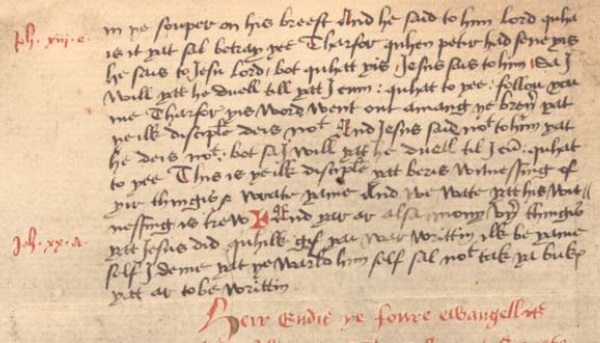 Joh. xiij. c.
in ye souper on his breest And he said to him Lord quha
is it yat sal betray yee Tharfor quhen petir had sene yis
he sais to Jesu Lord bot quhatt yis Jesus sais to him Sa I
will yatt he duell till yatt I cum : quhat to yee : follou you
me Tharfor yis word went out amang ye breyir yat
ye ilk disciple deis not And Jesus said not to him yat
he deis not : bot sa I will yatt he duell til I cum : quhat
to yee This is ye ilk disciple yatt beris witnessing of
yir thingis & wrate yame And we wate yatt his wit
nessing is trew And yar ar alsa mony vyir thingis
Joh. xx. d.
yat Jesus did quhilk gif yai war writtin ilk be yame
self I deme yat ye warld him self sal not tak ya bukis
yatt ar to be writtin
Heir Endis ye foure ewangellistis